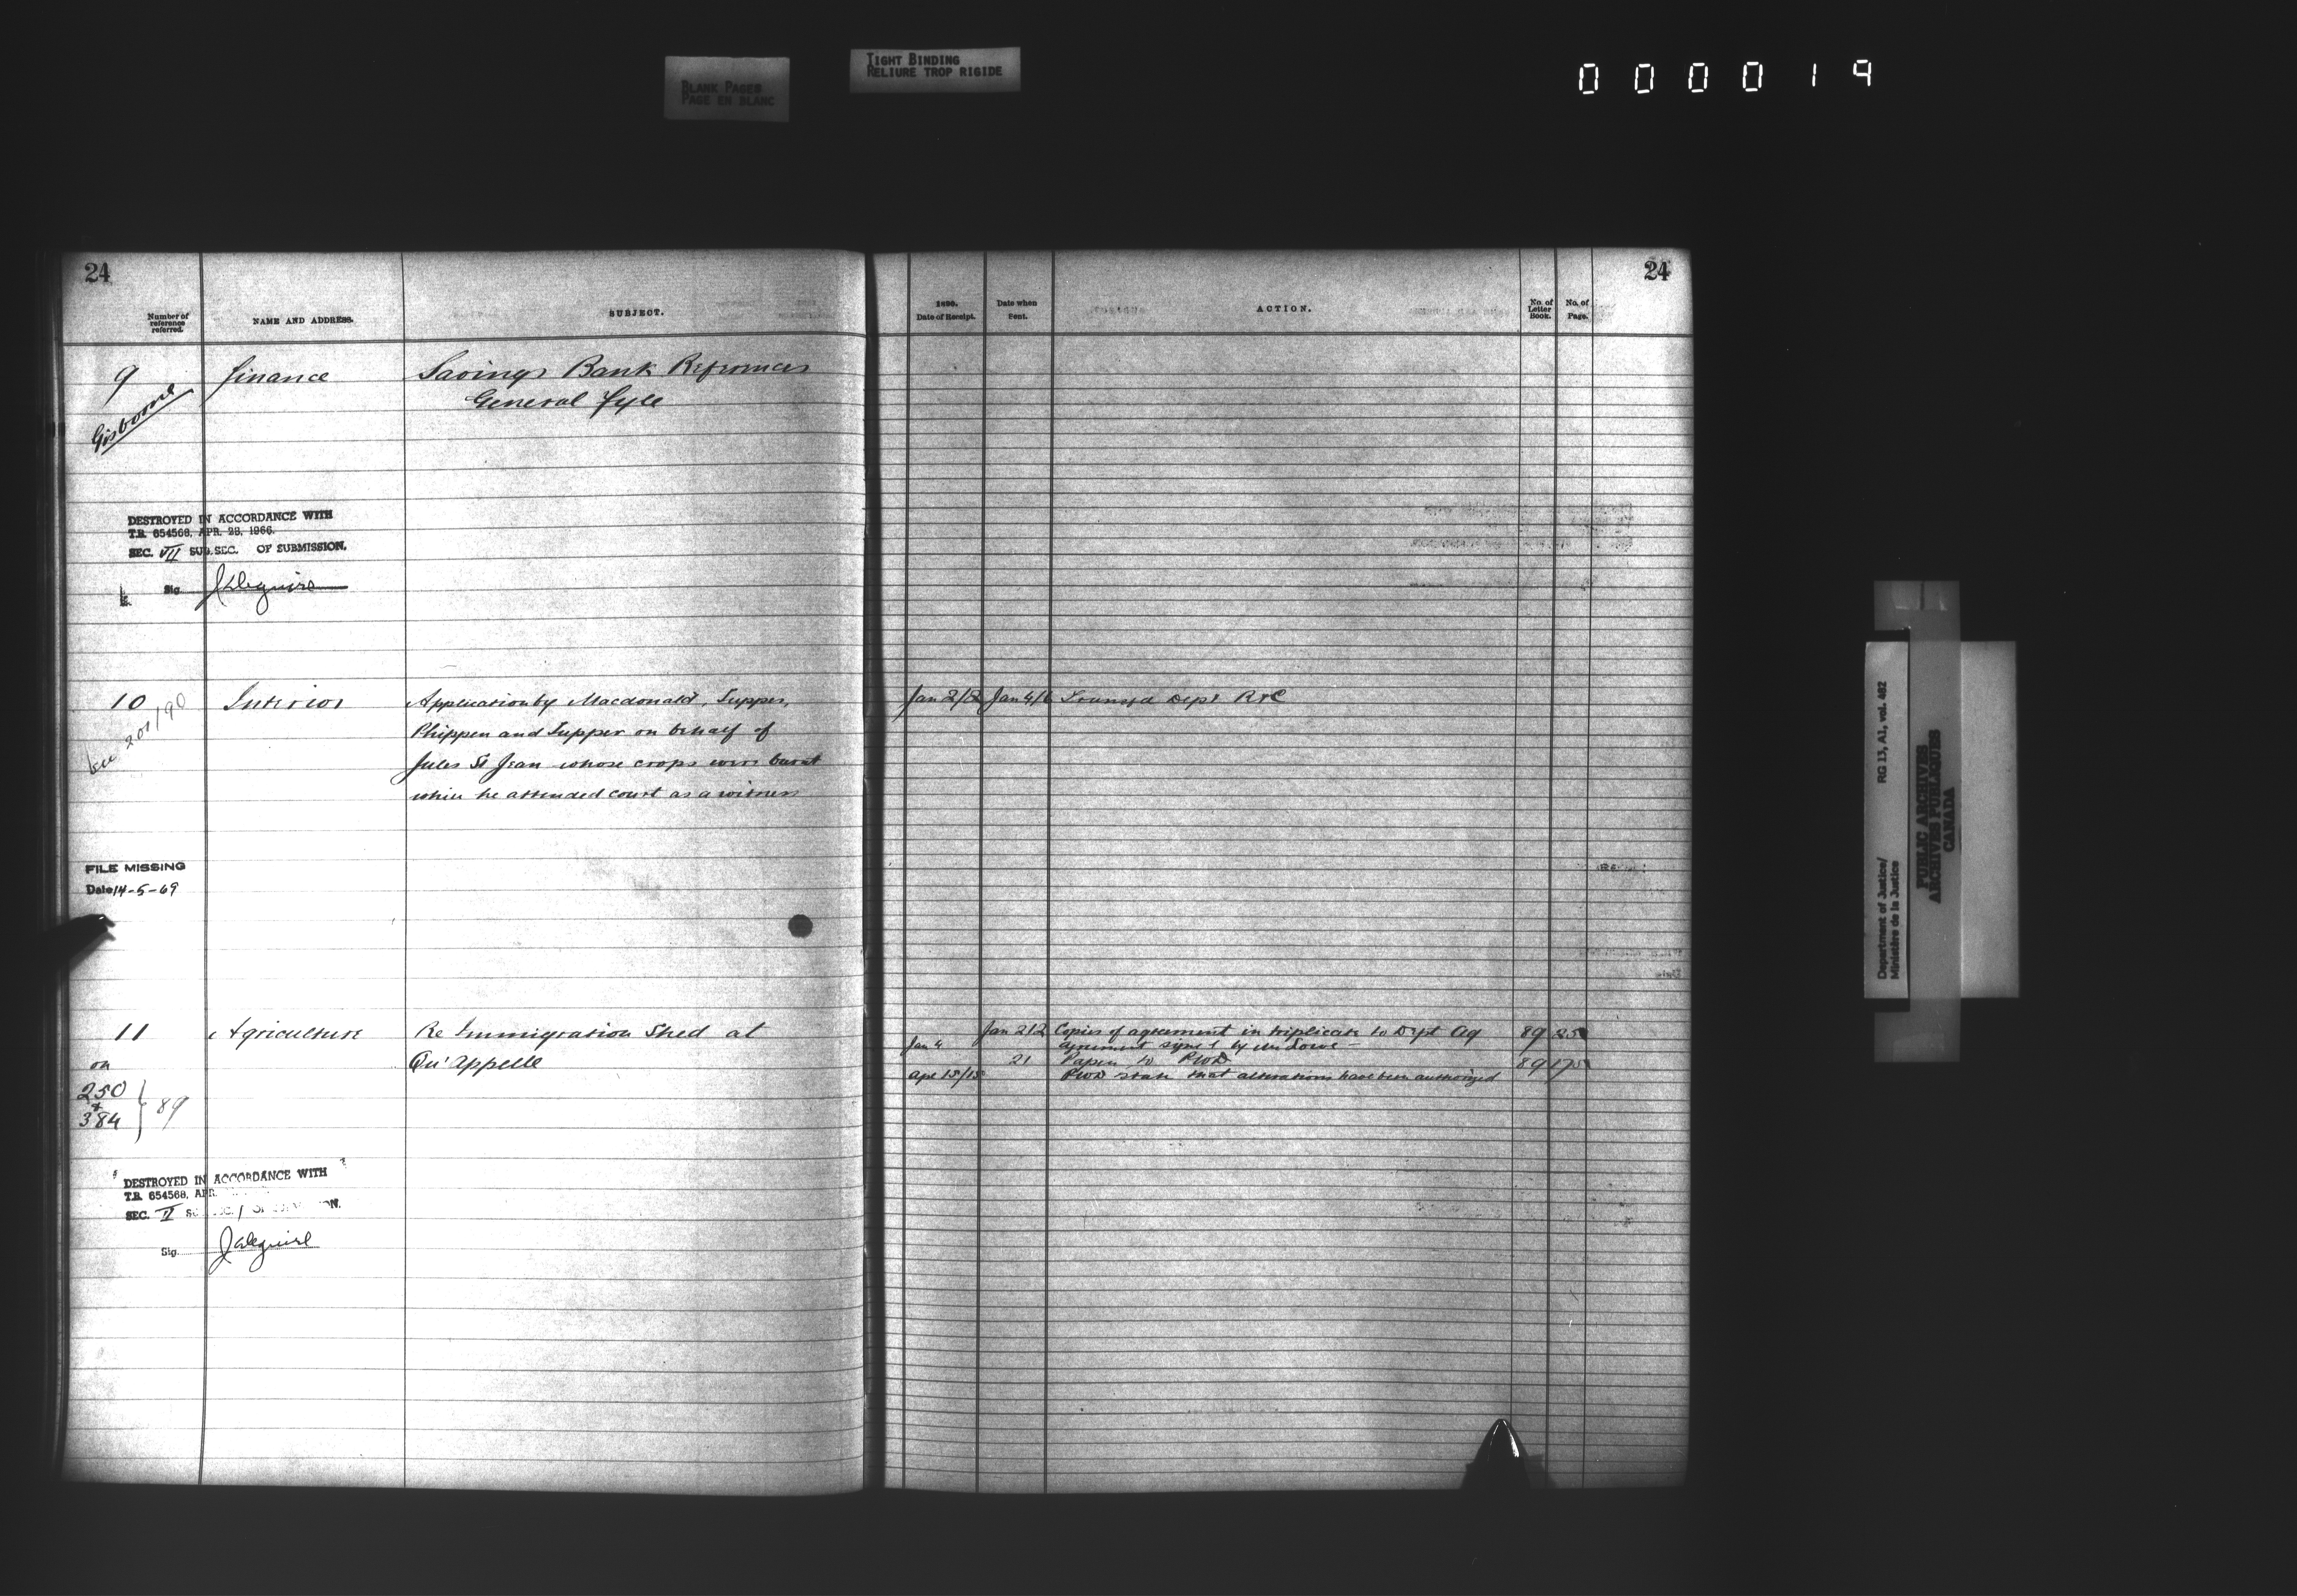 BLANK PAGES
PAGE EN BLANC
TIGHT BINDING
RELIURE TROP RIGIDE
000019
24
Number of reference referred.
NAME AND ADDRESS.
SUBJECT.
9
Finance
Savings Bank References
General Fyle
Gisborne
DESTROYED IN ACCORDANCE WITH
T.B. 654568, APR. 28, 1966.
SEC. VII SUB. SEC. OF SUBMISSION.
Sig.
10
Interior
Application by Macdonald, Tupper,
Phippen and Tupper on behalf of
Jules St Jean whose crops were burnt
while he attended court as a witness
201/90
FILE MISSING
Date 14-5-69
11
Agriculture
Re Immigration Shed at
Qu'Appelle
on
250
+
384
} 89
DESTROYED IN ACCORDANCE WITH
T.B. 654568, APR.
SEC. II
Sig.
24
1890.
Date of Receipt.
Date when Sent.
ACTION.
No. of Letter Book.
No. of Page.
Jan 2/2 Jan 4/6 Transfd Dept R&C
Jan 2/2 Copies of agreement in triplicate to Dept Ag 89 25
Jan 4 agreement signed by Mr Lowe —
21 Papers to PWD 89 175
Apr 15/15 PWD state that alterations have been authorized
Department of Justice/
Ministère de la Justice
RG 13, A1, vol. 462
PUBLIC ARCHIVES
ARCHIVES PUBLIQUES
CANADA